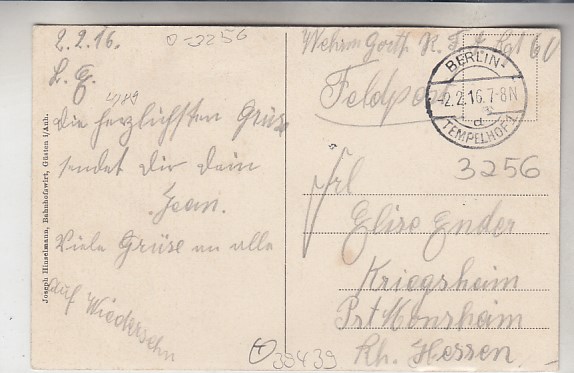 2.2.16.
0-3256
L. E.
4789
Die herzlichsten Grüse
sendet Dir dein
Jean.
Viele Grüse an alle
auf Wiedersehn
Joseph Hinselmann, Bahnhofswirt, Güsten i/Anh.
Wehrm
Feldpost
BERLIN-
-2.2.16.7-8N
d
TEMPELHOF 1
3256
Frl
Elise Ender
Kriegsheim
Pst Monsheim
Rh. Hessen
38439